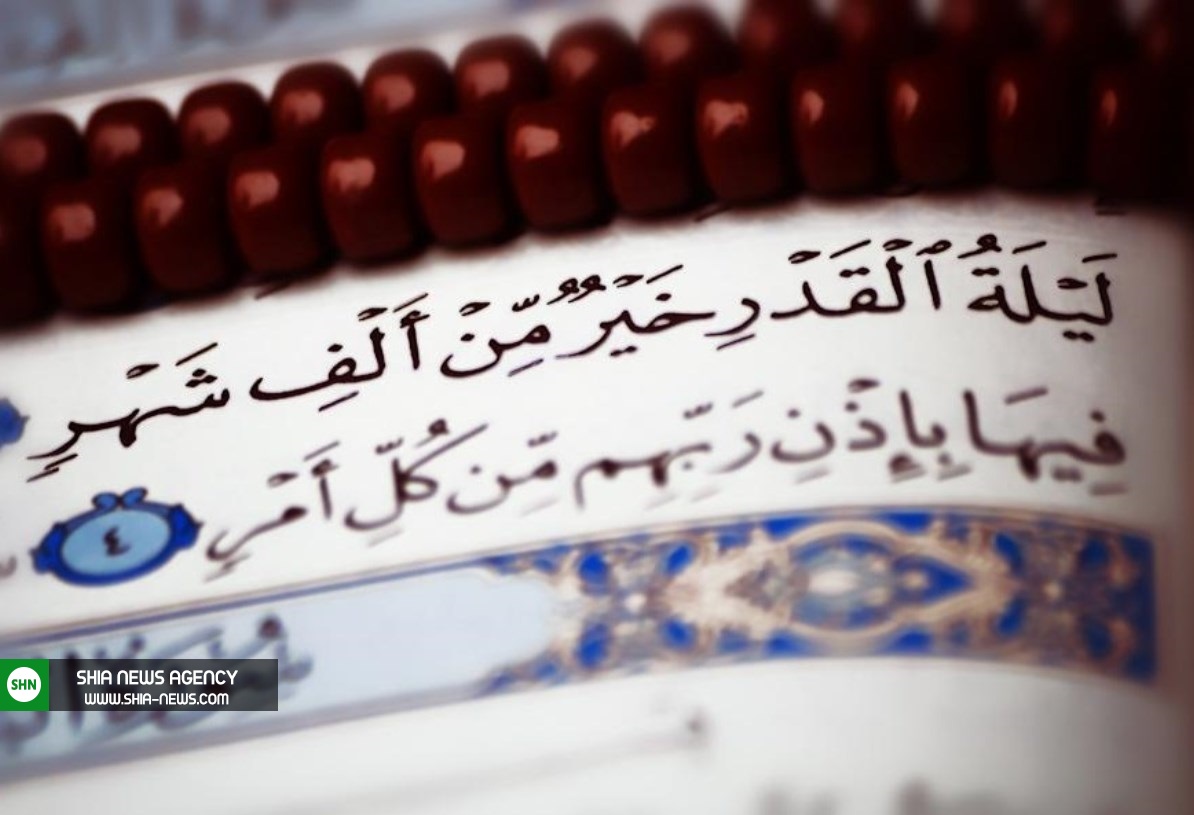 لَيْلَةُ ٱلْقَدْرِ خَيْرٌ مِّنْ أَلْفِ شَهْرٍ
فِيهَا بِإِذْنِ رَبِّهِم مِّن كُلِّ أَمْرٍ ٤
SHN SHIA NEWS AGENCY
WWW.SHIA-NEWS.COM